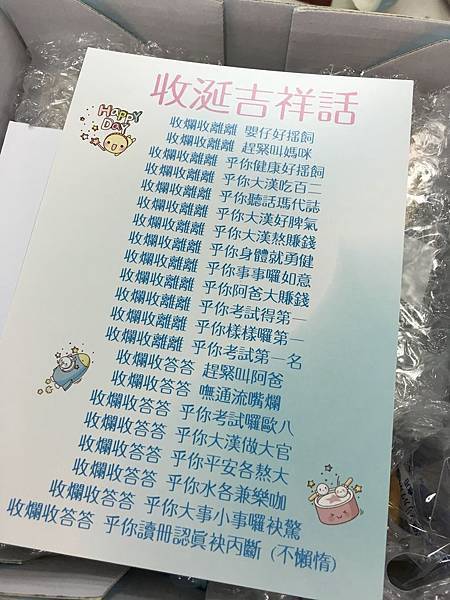 收涎吉祥話
Happy Day
收爛收離離 嬰仔好搖飼
收爛收離離 趕緊叫媽咪
收爛收離離 乎你健康好搖飼
收爛收離離 乎你大漢吃百二
收爛收離離 乎你聽話瑪代誌
收爛收離離 乎你大漢好脾氣
收爛收離離 乎你大漢熬賺錢
收爛收離離 乎你身體就勇健
收爛收離離 乎你事事囉如意
收爛收離離 乎你阿爸大賺錢
收爛收離離 乎你考試得第一
收爛收離離 乎你樣樣囉第一
收爛收離離 乎你考試第一名
收爛收答答 趕緊叫阿爸
收爛收答答 嘸通流嘴爛
收爛收答答 乎你考試囉歐八
收爛收答答 乎你大漢做大官
收爛收答答 乎你平安各熬大
收爛收答答 乎你水各兼樂咖
收爛收答答 乎你大事小事囉袂驚
收爛收答答 乎你讀冊認真袂丙斷 (不懶惰)